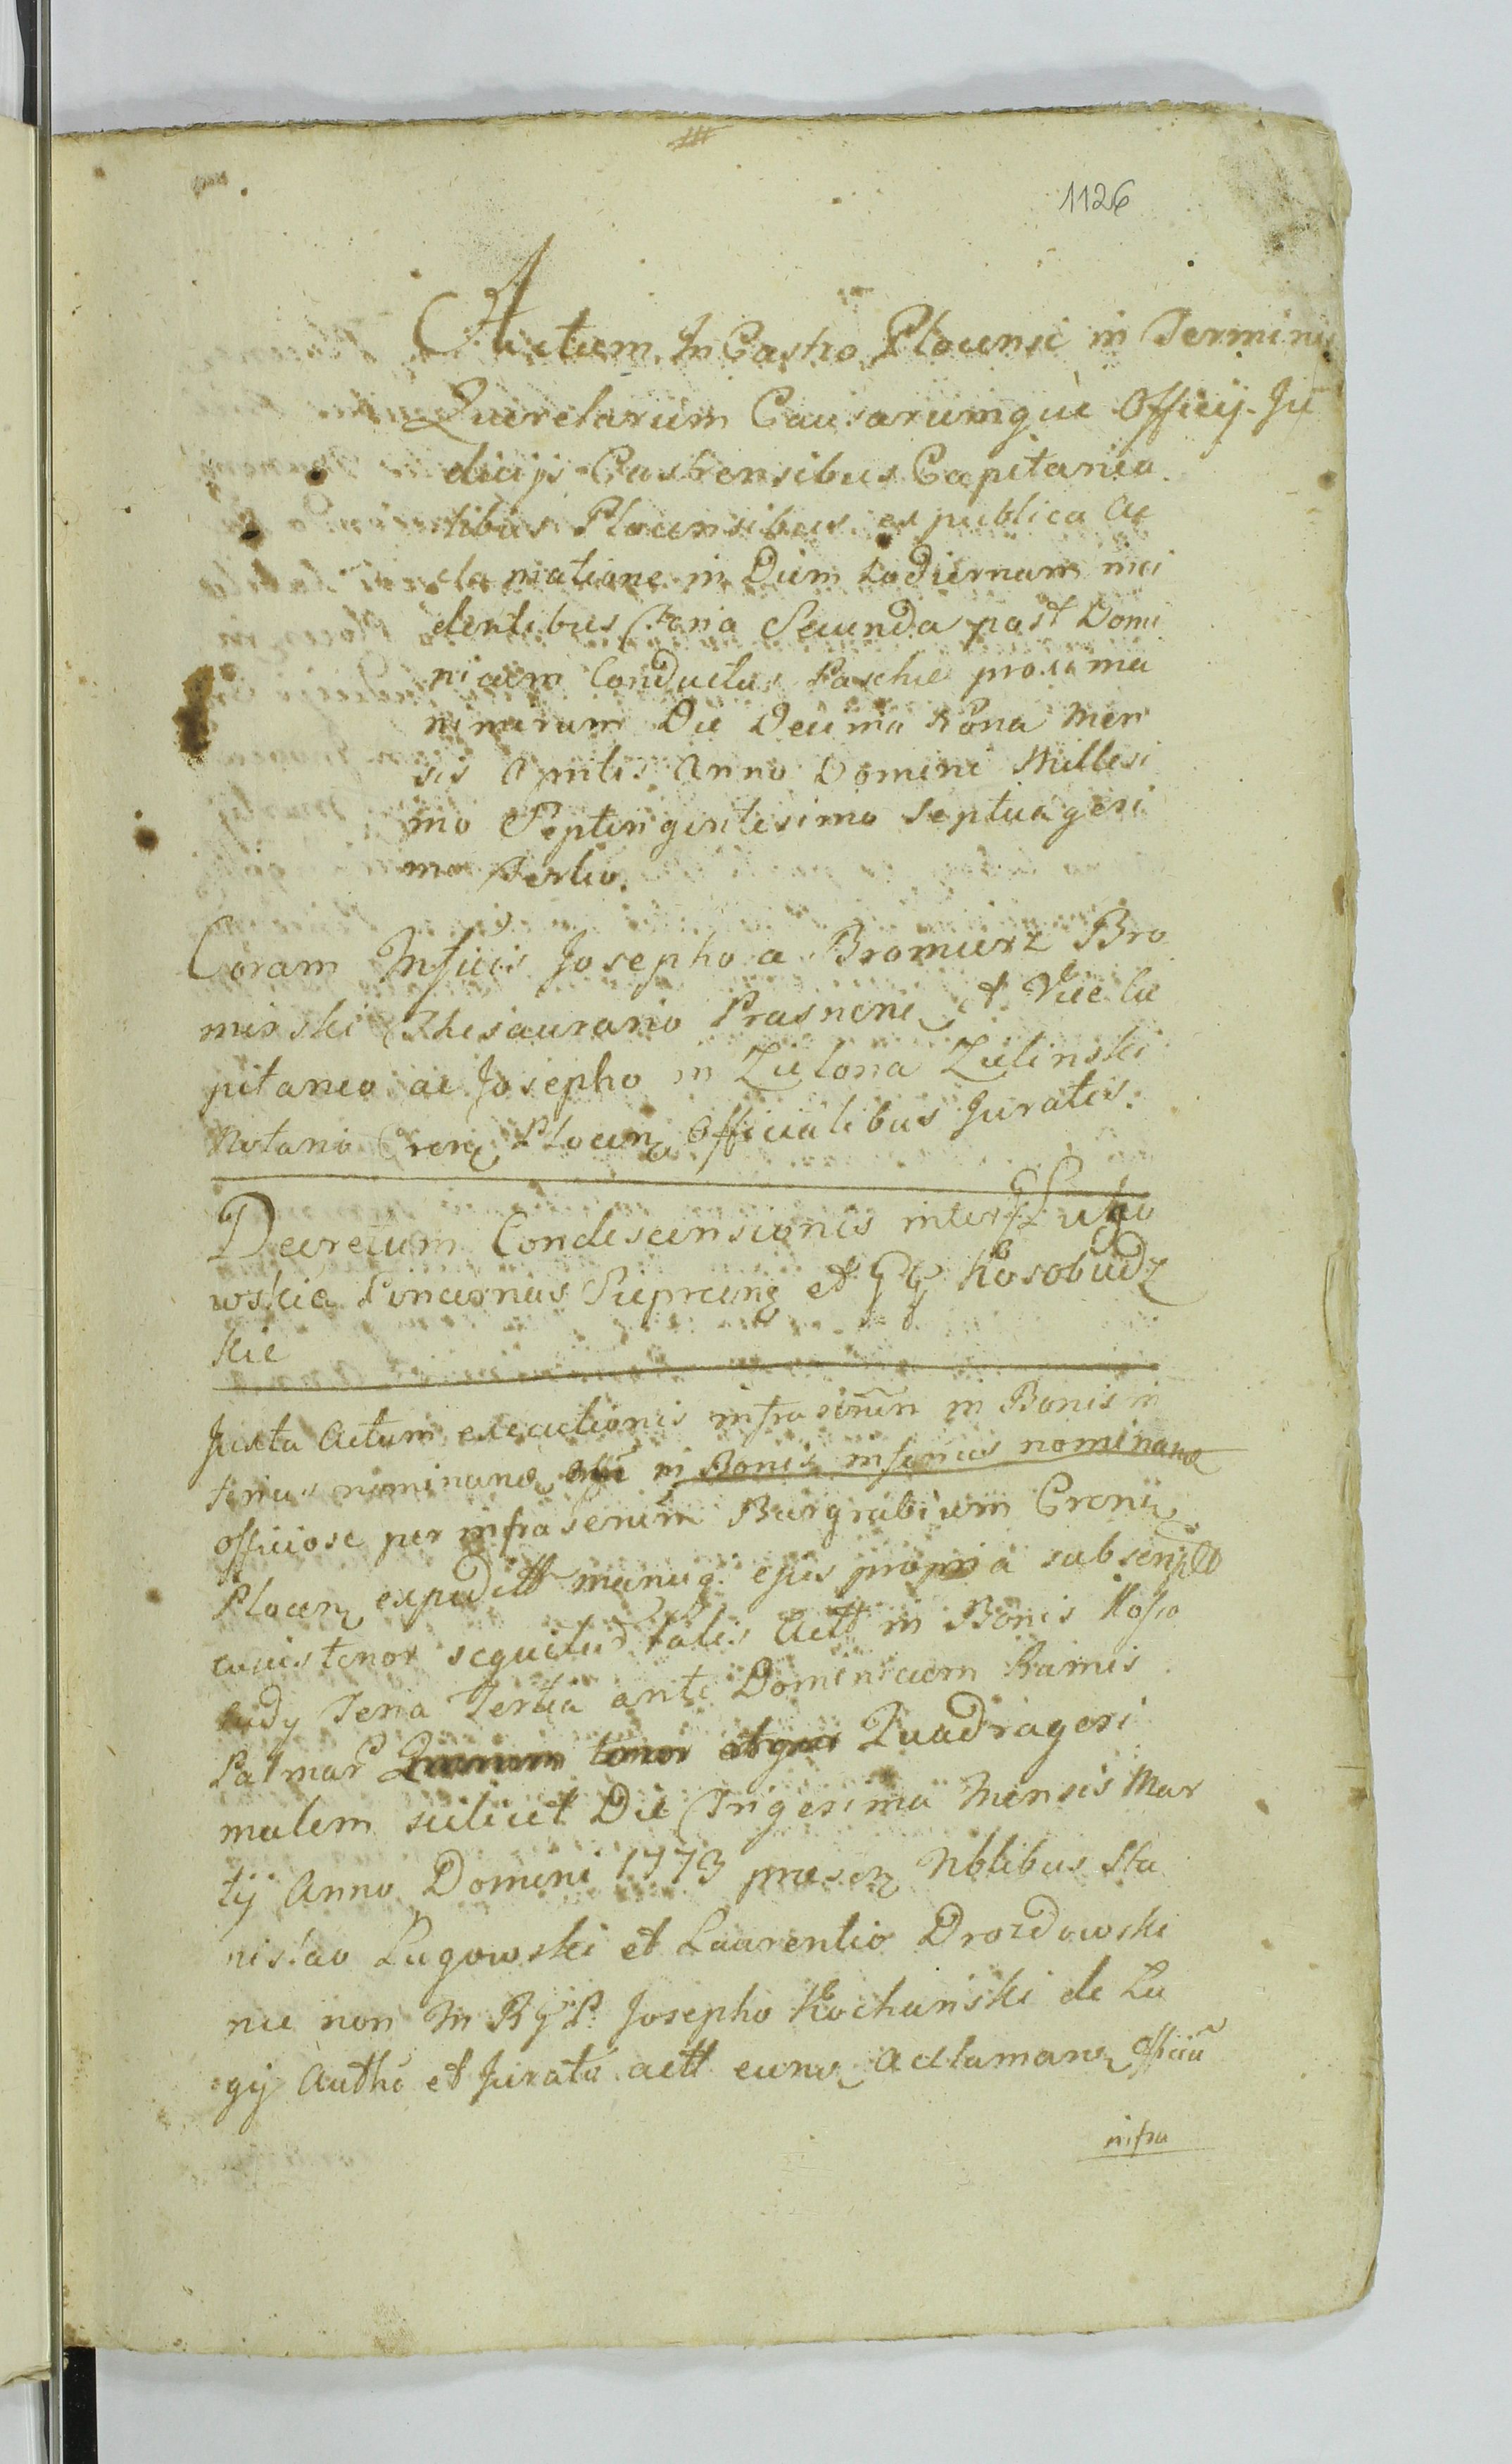 1126
Actum In Castro Plocensi in Terminis
Querelarum Causarumque Officij Ju
dicijs Castrensibus Capitanea
libus Plocensibus ex publica Ac
clamatione in Diem hodiernam inci
dentibus Feria Secunda post Domi
nicam Conductus Paschae proxima
nimirum Die Decima Nona Men
sis Aprilis Anno Domini Millesi
mo Septingentesimo Septuagesi
mo Tertio.
Coram Mfficis Josepho a Bromierz Bro
mirski Thesaurario Prasnen et Vice Ca
pitaneo ac Josepho in Zielona Zielinski
Notario Cren Plocen Officialibus Juratis.
Decretum Condescensionis inter Lugo
wskie Pincernas Sieprcens et GG Kosobudz
kie
Juxta Actum exactionis infrascrum in Bonis in
ferius nominans in Bonis inferius nominans
officiose per infrascrum Burgrabium Crens
Plocen expeditt manuq ejus propria subscriptt
cuius tenor sequitur talis Actt in Bonis Koso
budy Feria Tertia ante Dominicam Ramis
Palmar Quadragesi
malem scilicet Die Trigesima Mensis Mar
tij Anno Domini 1773 praesen Nblibus Sta
nislao Lugowski et Laurentio Drozdowski
nec non M R G P. Josepho Kochanski de La
gij Authe et Jurato actt eunq Aclamans officiu
infra